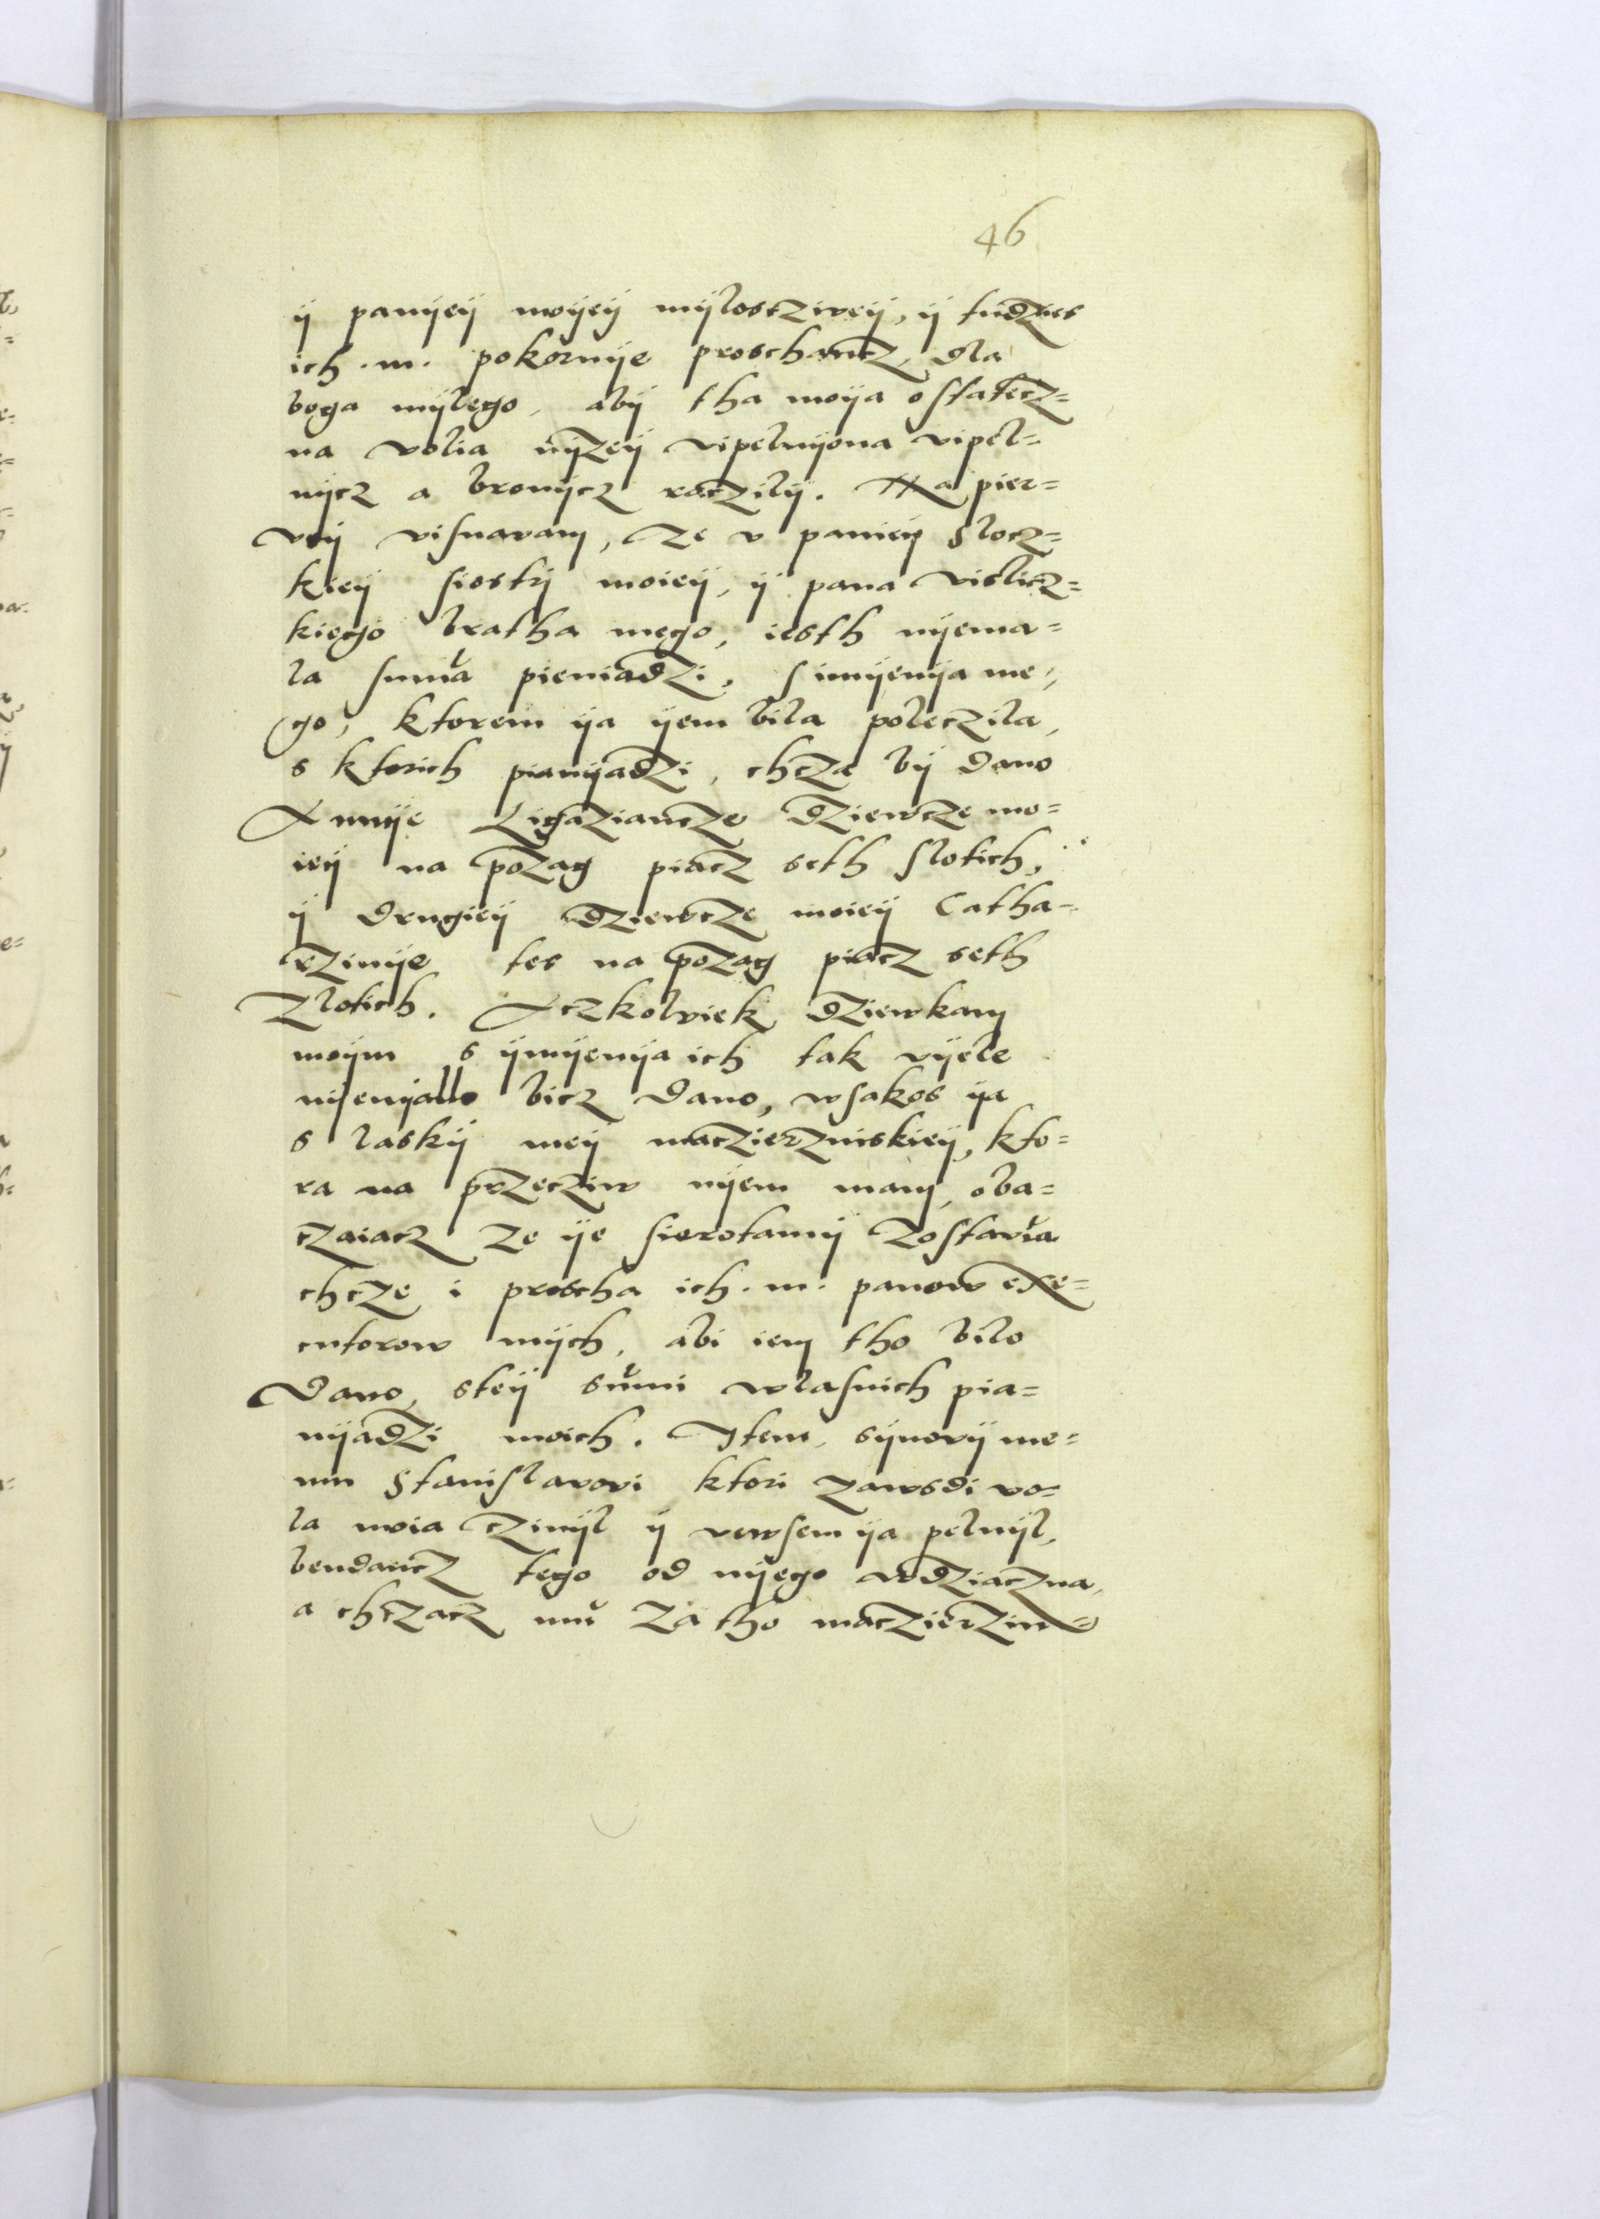 46
ÿ panÿeÿ moÿeÿ mÿlostziveÿ, ÿ tudzies
ich . m . pokornÿe proschancz, dla
boga mÿlego, abÿ tha moÿa ostatecz=
na volia nÿzeÿ vipelnÿona vipel=
nÿcz a bronÿcz raczilÿ. Na pier=
veÿ visnavam, ze v panieÿ Slocz=
kieÿ siostrÿ moieÿ, ÿ pana vislicz=
kiego bratha mego, iesth nÿema=
la suma pieniadzi, s imÿenÿa me=
go, ktorem ÿa ÿem bila poleczila,
s ktorich pianÿadzi, chcza bÿ dano
Annÿe Ligaziancze dziewcze mo=
ieÿ na pozag piacz seth slotich,
ÿ drugieÿ dziewcze moieÿ Catha=
rzinÿe tes na pozag piacz seth
zlotich. Aczkolviek dziewkam
moÿm s ÿmÿenÿa ich tak vÿele
nÿenÿallo bicz dano, wsakos ÿa
s laskÿ meÿ maczierzinskieÿ, kto=
ra na przecziw nÿem mam, oba=
czaiacz ze ÿe sierotamÿ zostavia
chcze i proscha ich . m . panow exe=
cutorow mÿch, abi iem tho bilo
dano, steÿ sumi wlasnich pia=
nÿadzi moich. Item, sÿnovÿ me=
mu Stanislavovi ktori zawsdi vo=
la moia czinÿl ÿ vewsem ÿa pelnÿl,
bendancz tego od nÿego wdziaczna,
a chczacz mu za tho maczierzin=